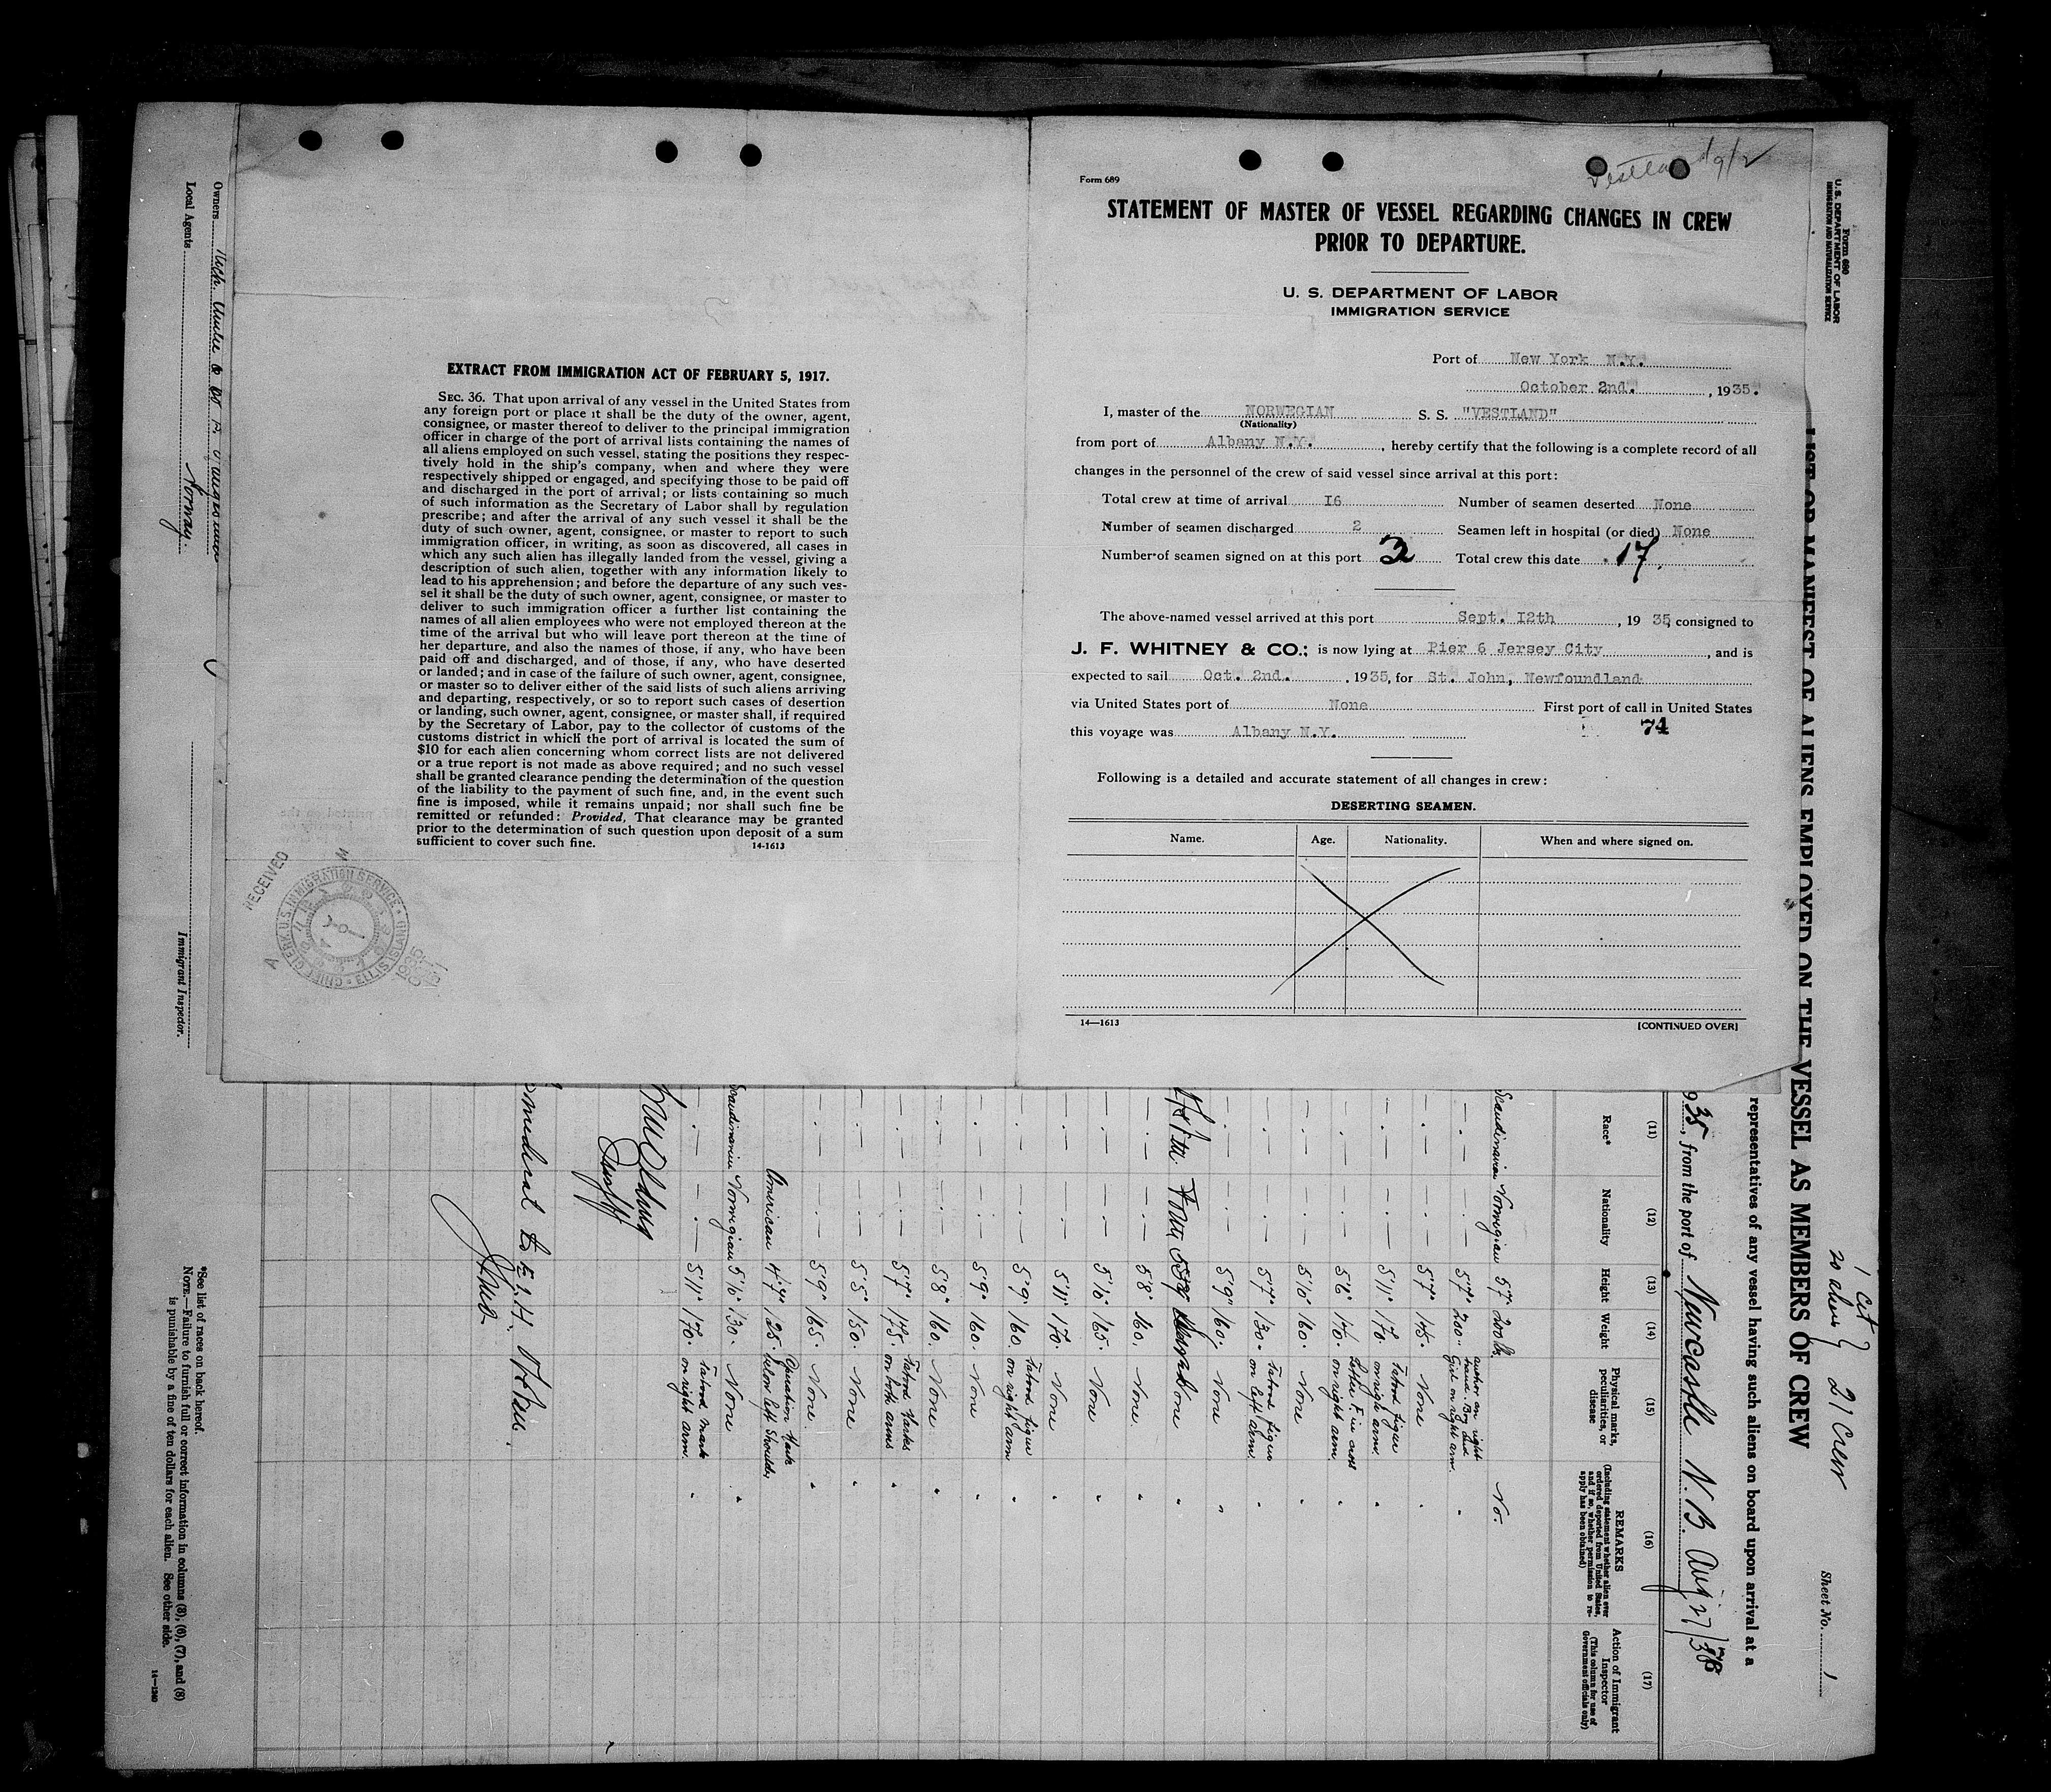 Form 689
Vestland 9/12
STATEMENT OF MASTER OF VESSEL REGARDING CHANGES IN CREW
PRIOR TO DEPARTURE.
U. S. DEPARTMENT OF LABOR
IMMIGRATION SERVICE
Port of New York N.Y.
October 2nd. , 1935.
I, master of the NORWEGIAN S. S. "VESTLAND"
(Nationality)
from port of Albany N.Y. , hereby certify that the following is a complete record of all
changes in the personnel of the crew of said vessel since arrival at this port:
Total crew at time of arrival 16 Number of seamen deserted None
Number of seamen discharged 2 Seamen left in hospital (or died) None
Number of seamen signed on at this port 3 Total crew this date 17.
The above-named vessel arrived at this port Sept. 12th , 19 35, consigned to
J. F. WHITNEY & CO.; is now lying at Pier 6 Jersey City , and is
expected to sail Oct. 2nd. , 1935, for St. John, Newfoundland
via United States port of None First port of call in United States
this voyage was Albany N.Y. 74
Following is a detailed and accurate statement of all changes in crew:
DESERTING SEAMEN.
Name. Age. Nationality. When and where signed on.
14—1613 [CONTINUED OVER]
EXTRACT FROM IMMIGRATION ACT OF FEBRUARY 5, 1917.
SEC. 36. That upon arrival of any vessel in the United States from
any foreign port or place it shall be the duty of the owner, agent,
consignee, or master thereof to deliver to the principal immigration
officer in charge of the port of arrival lists containing the names of
all aliens employed on such vessel, stating the positions they respec-
tively hold in the ship's company, when and where they were
respectively shipped or engaged, and specifying those to be paid off
and discharged in the port of arrival; or lists containing so much
of such information as the Secretary of Labor shall by regulation
prescribe; and after the arrival of any such vessel it shall be the
duty of such owner, agent, consignee, or master to report to such
immigration officer, in writing, as soon as discovered, all cases in
which any such alien has illegally landed from the vessel, giving a
description of such alien, together with any information likely to
lead to his apprehension; and before the departure of any such ves-
sel it shall be the duty of such owner, agent, consignee, or master to
deliver to such immigration officer a further list containing the
names of all alien employees who were not employed thereon at the
time of the arrival but who will leave port thereon at the time of
her departure, and also the names of those, if any, who have been
paid off and discharged, and of those, if any, who have deserted
or landed; and in case of the failure of such owner, agent, consignee,
or master so to deliver either of the said lists of such aliens arriving
and departing, respectively, or so to report such cases of desertion
or landing, such owner, agent, consignee, or master shall, if required
by the Secretary of Labor, pay to the collector of customs of the
customs district in which the port of arrival is located the sum of
$10 for each alien concerning whom correct lists are not delivered
or a true report is not made as above required; and no such vessel
shall be granted clearance pending the determination of the question
of the liability to the payment of such fine, and, in the event such
fine is imposed, while it remains unpaid; nor shall such fine be
remitted or refunded: Provided, That clearance may be granted
prior to the determination of such question upon deposit of a sum
sufficient to cover such fine.
14-1613
RECEIVED
CHIEF CLERK U.S. IMMIGRATION SERVICE • ELLIS ISLAND
1935
Form 680
U. S. DEPARTMENT OF LABOR
IMMIGRATION AND NATURALIZATION SERVICE
Sheet No. 1
1 cit
20 aliens
21 Crew
LIST OR MANIFEST OF ALIENS EMPLOYED ON THE VESSEL AS MEMBERS OF CREW
representatives of any vessel having such aliens on board upon arrival at a
935, from the port of Newcastle N. B. Aug 27/35
(11) (12) (13) (14) (15) (16) (17)
Race* Nationality Height Weight
Physical marks, peculiarities, or disease
REMARKS
(Including statement whether alien ever ordered deported from United States, and if so, whether permission to re-apply has been obtained)
Action of Immigrant Inspector
(This column for use of Government officials only)
Scandinavian Norwegian 5'7" 200 lb. No.
5'7" 200 anchor on right hand. Boy and Girl on right arm.
5'7" 145 None
5'11" 170 Tatood figur on right arm.
5'6" 140 Letter F in cross on right arm
5'10 160 None
5'7" 130 Tatood figur on left arm
5'9" 160 None
None
5'8" 160 None.
5'10" 165 None
5'11" 170 None
5'9" 160 Tatood figur on right arm
5'9" 160 None
5'8" 160 None
5'7" 175 Tatood Marks on both arms
5'5" 150 None
5'9" 165 None
American 4'7" 125 Operation Mark below left shoulder
Scandinavian Norwegian 5'10 130 None
5'11" 170 Tatood mark on right arm.
Owners
Local Agents
Norway.
Immigrant Inspector.
*See list of races on back hereof.
NOTE.—Failure to furnish full or correct information in columns (3), (6), (7), and (8)
is punishable by a fine of ten dollars for each alien. See other side.
14—1240